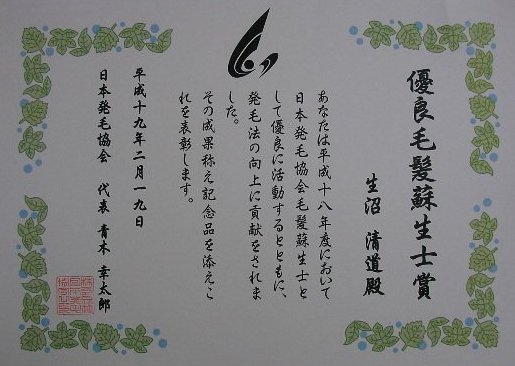 優良毛髪蘇生士賞
生沼 清道殿
あなたは平成十八年度において
日本発毛協会毛髪蘇生士と
して優良に活動するとともに、
発毛法の向上に貢献をされま
した。
その成果称え記念品を添えこ
れを表彰します。
平成十九年二月一九日
日本発毛協会 代表 青木 幸太郎